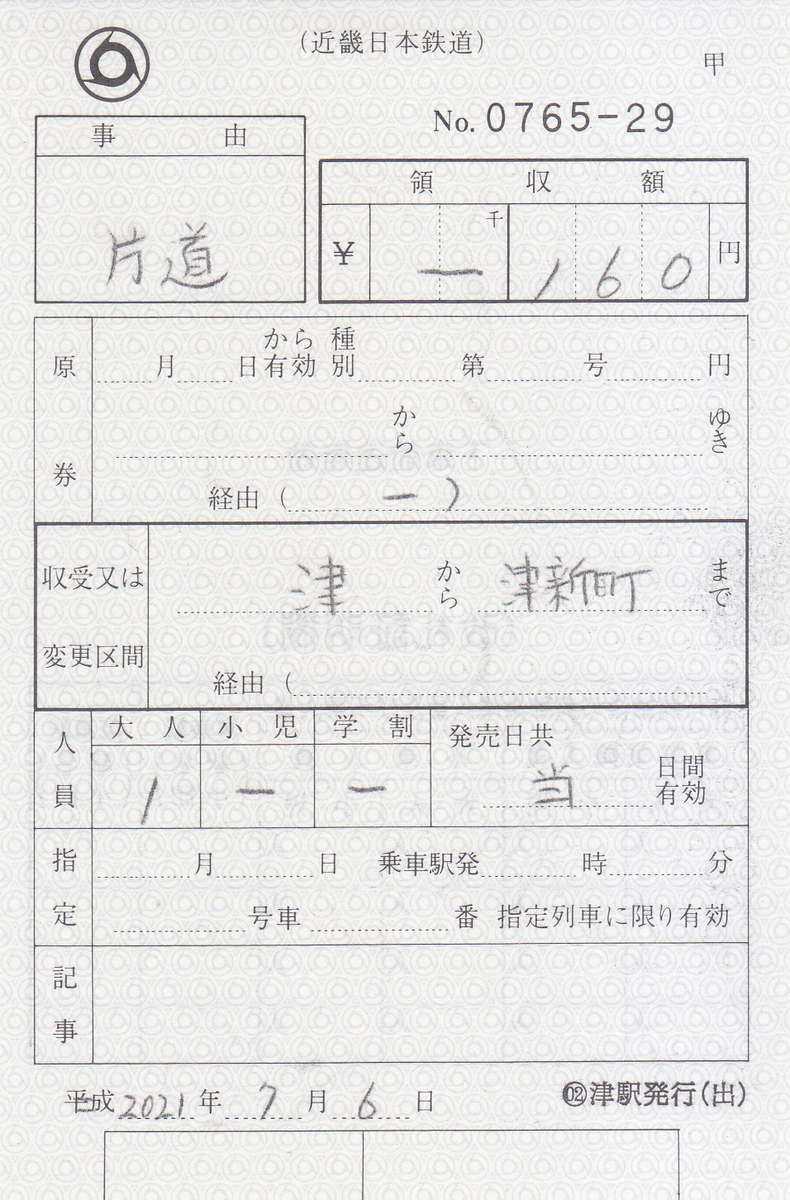 (近畿日本鉄道)
甲
No. 0765-29
事由
片道
領収額
千
¥ ー 160 円
原券
月 日から有効 種別 第 号 円
から ゆき
経由 ( ー )
収受又は変更区間
津 から 津新町 まで
経由 (
人員
大人 小児 学割
1 ー ー
発売日共
当 日間有効
指定
月 日 乗車駅発 時 分
号車 番 指定列車に限り有効
記事
平成 2021 年 7 月 6 日
02 津駅発行(出)